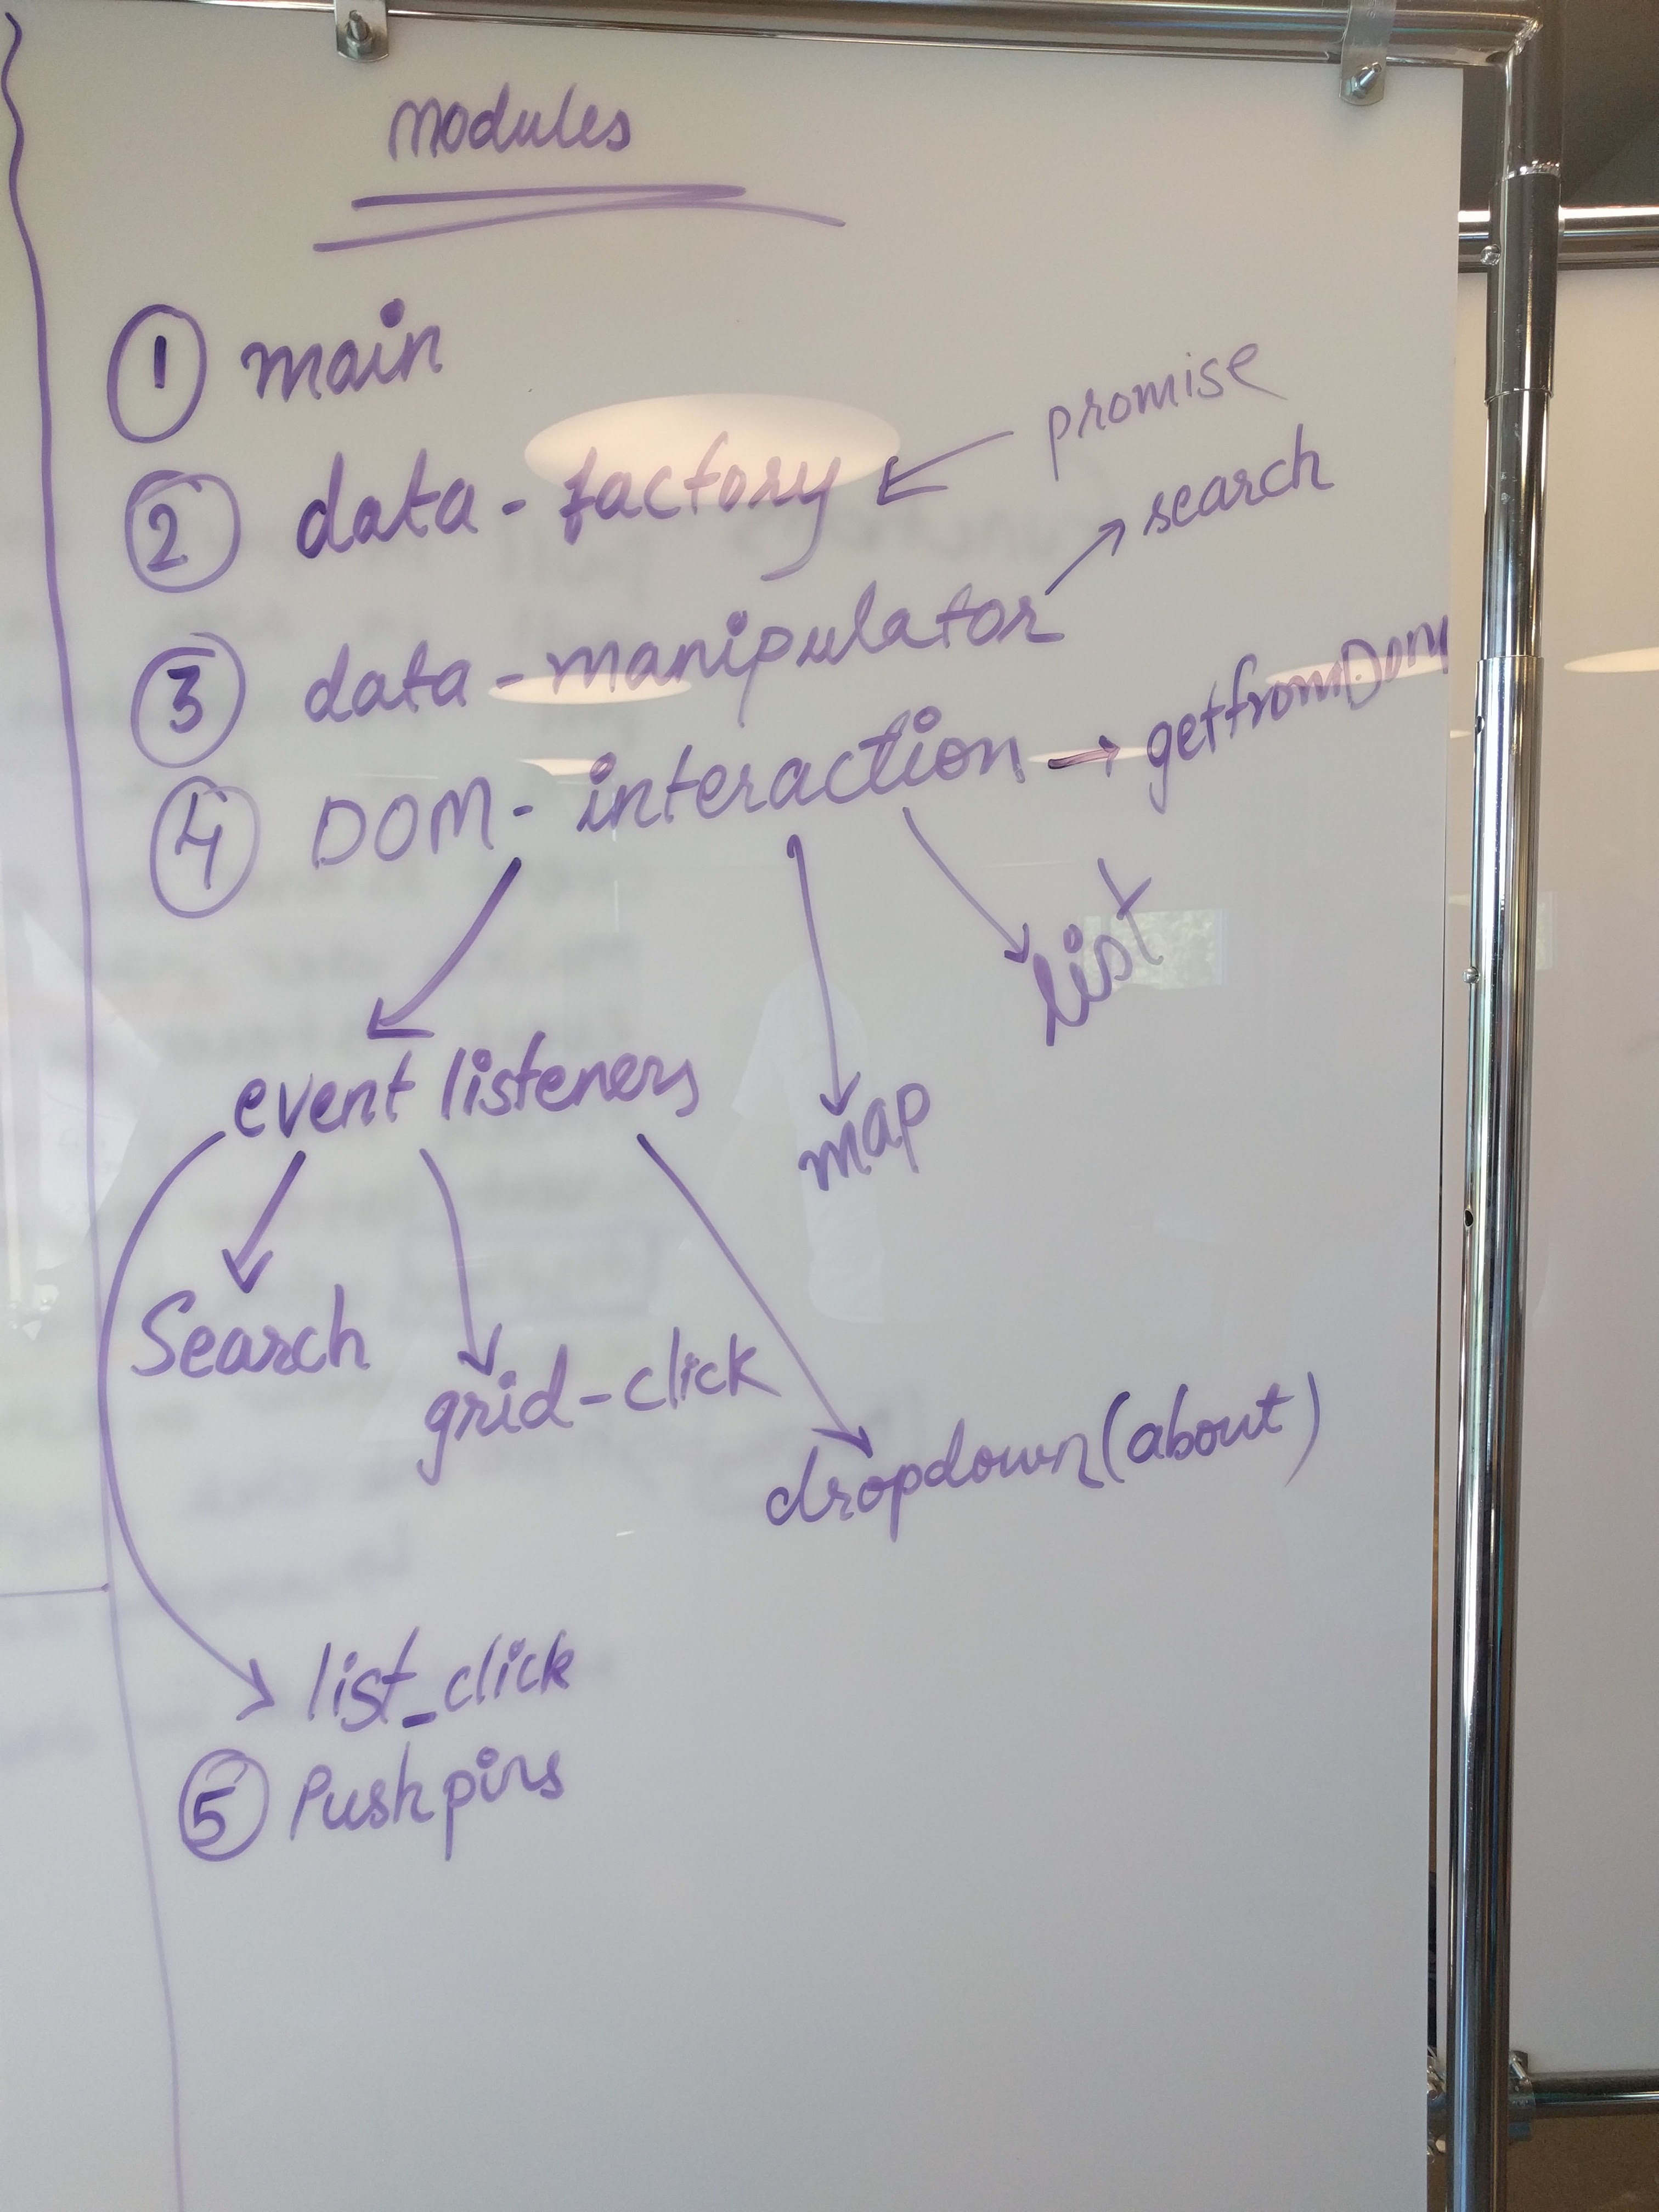 modules
① main
promise
② data-factory
search
③ data-manipulator
④ DOM-interaction → getfromDom
list
event listeners
map
Search
grid-click
dropdown(about)
list_click
⑤ Pushpins